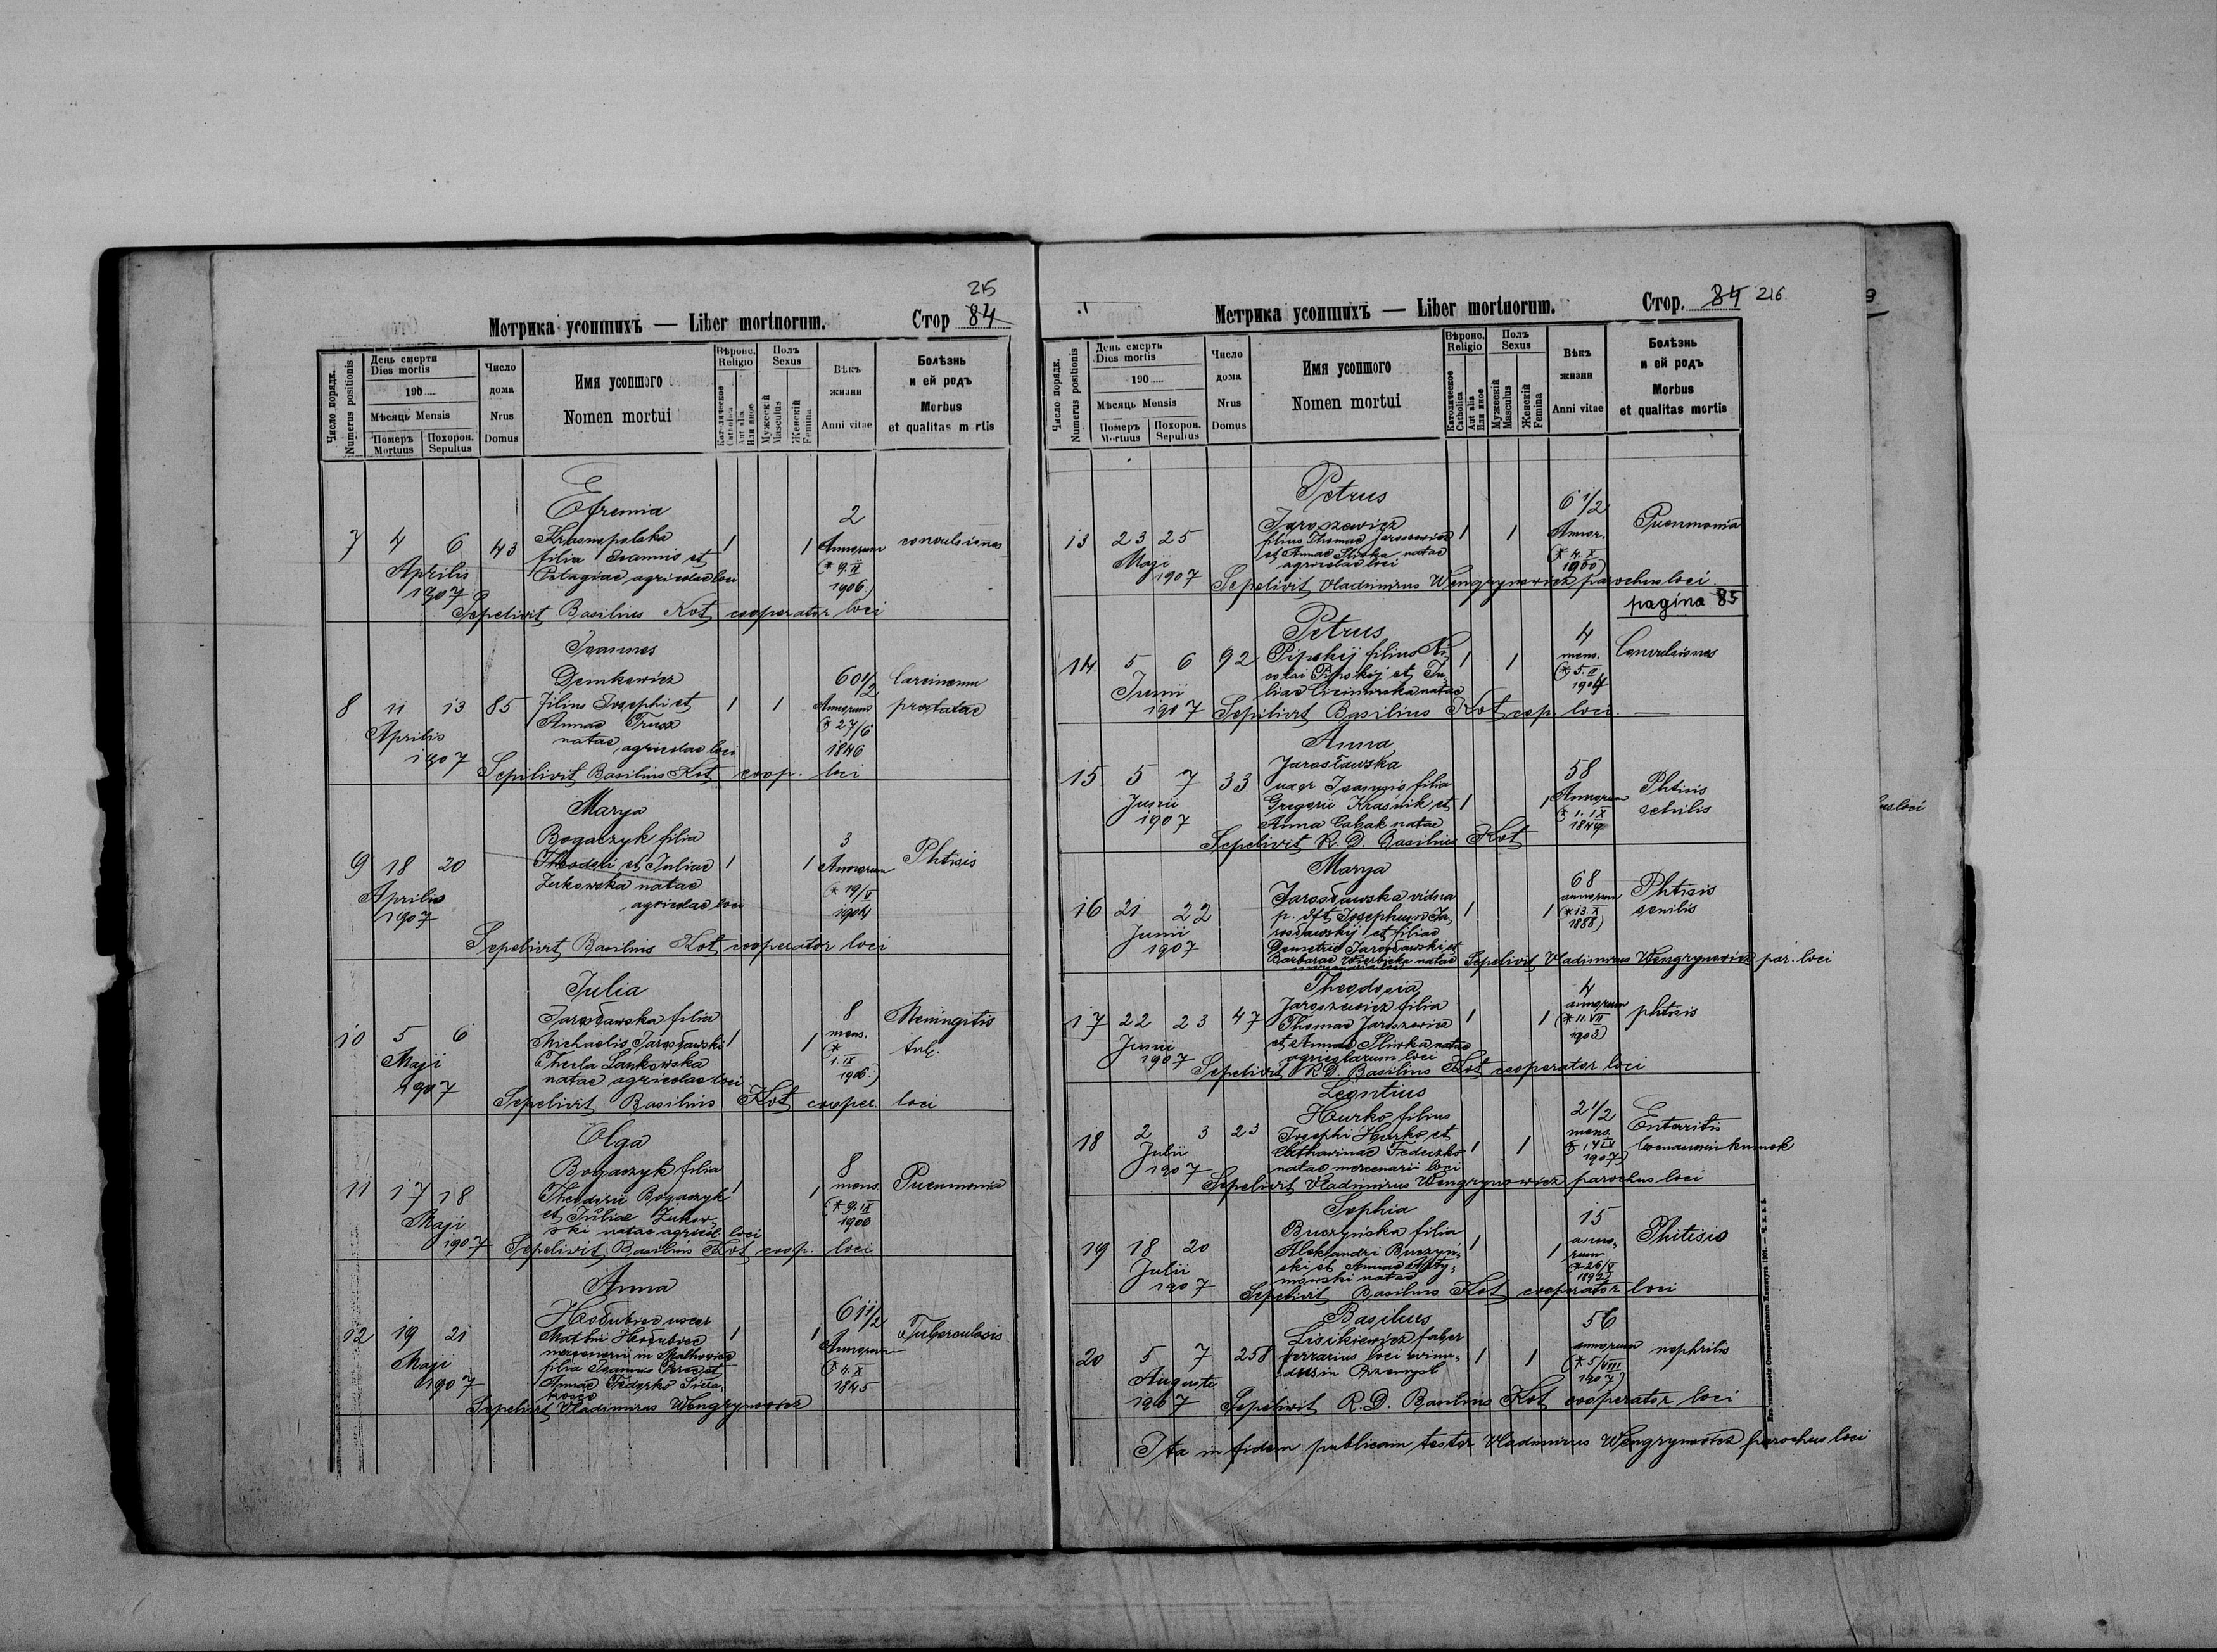 215
Метрика усопшихъ — Liber mortuorum. Стор 84
Число порядк.
Numerus positionis
День смерти
Dies mortis
190
Мѣсяць Mensis
Померъ
Mortuus
Похорон.
Sepultus
Число
дома
Nrus
Domus
Имя усопшого
Nomen mortui
Вѣроис.
Religio
Католическое
Catholica
Aut alia
Или иное
Полъ
Sexus
Мужескій
Masculus
Женскій
Femina
Вѣкъ
жизни
Anni vitae
Болѣзнь
и ей родъ
Morbus
et qualitas m rtis
Efremia
7 4 6 43 Krasnopolska 1 1 2 Annorum convulsiones
filia Ioannis et
Pelagiae, agricolae loci
Aprilis
1907
(* 9.II
1906)
Sepelivit Basilius Kot cooperator loci
Ioannes
Demkowicz
8 11 13 85 filius Josephi et 1 1 60 1/2 Annorum Carcinoma
Annae Trusz prostatae
natae, agricolae loci
Aprilis
1907
* 27/6
1846
Sepilivit Basilius Kot coop. loci
Marya
Bogaczyk filia
9 18 20 Theodori et Juliae 1 1 3 Annorum Phtisis
Zukowska natae
agricolae loci
Aprilis
1907
* 19/V
1904
Sepelivit Basilius Kot cooperator loci
Julia
Jarosławska filia
10 5 6 Michaelis Jarosławski 1 1 8 mens. Meningitis
Thecla Lankowska tub.
natae agricolae loci
Maji
1907
(*
1.IX
1906.)
Sepelivit Basilius Kot cooper. loci
Olga
Bogaczyk filia
11 17 18 Theodori Bogaczyk 1 1 8 mens. Pneumonia
et Juliae Zukow-
ski natae agricol. loci
Maji
1907
(* 9.IX
1906
Sepelivit Basilius Kot coop. loci
Anna
Hołubiec uxor
12 19 21 Mathii Hołubiec 1 1 61 1/2 Annorum Tuberculosis
mercenarii in Malkowice
filia Ioannis et
Annae Fedorko
Maji
1907
(* 4.X
1845
Sepelivit Vladimirus Wengrynowicz
Метрика усопшихъ — Liber mortuorum. Стор. 84 216
Число порядк.
Numerus positionis
День смерть
Dies mortis
190
Мѣсяць Mensis
Померъ
Mortuus
Похорон.
Sepultus
Число
дома
Nrus
Domus
Имя усопшого
Nomen mortui
Вѣроис.
Religio
Католическое
Catholica
Aut alia
Или иное
Полъ
Sexus
Мужескій
Masculus
Женскій
Femina
Вѣкъ
жизни
Anni vitae
Болѣзнь
и ей родъ
Morbus
et qualitas mortis
Petrus
Jaroszewicz
13 23 25 filius Thomae Jaroszewicz 1 1 6 1/2 Annor. Pneumonia
et Annae Sliwka natae
agricolae loci
Maji
1907
(* 4.X
1900)
Sepelivit Vladimirus Wengrynowicz parochus loci
pagina 85
Petrus
14 5 6 92 Pipskij filius Ni- 1 1 4 mens. Convulsiones
colai Pipskij et Ju-
liae natae
Junii
1907
(* 5.II
1904
Sepilivit Basilius Kot cop. loci.
Anna
Jarosławska
15 5 7 33 uxor Ioannis filia 1 1 58 Annorum Phtisis
Gregorii Kraśnik et senilis
Anna Cabak natae
Junii
1907
(* 1.IX
1849
Sepelivit R. D. Basilius Kot
Marya
Jarosławska vidua
16 21 22 p. dft Josephum Ja- 1 1 68 annorum Phtisis
rosławskij et filiae senilis
Demetrii Jarosławski et
Barbarae Wierbicka natae
Junii
1907
(* 13.X
1838)
Sepelivit Vladimirus Wengrynowicz par. loci
Theodosia
Jaroszewicz filia
17 22 23 47 Thomae Jaroszewicz 1 1 4 annorum phtisis
et Annae Sliwka natae
agricolarum loci
Junii
1907
(* 11.VII
1903)
Sepelivit R.D. Basilius Kot cooperator loci
Leontius
Hurko filius
18 2 3 23 Josephi Hurko et 1 1 2 1/2 mens. Enteritis
Catharinae Fedeczko
natae mercenarii loci
Julii
1907
(* 14 IV
1907)
Sepelivit Vladimirus Wengrynowicz parochus loci
Sophia
Buczyńska filia
19 18 20 Aleksandri Buczyń- 1 1 15 anno- Phitisis
ski et Annae rum
natae
Julii
1907
* 26/V
1892)
Sepelivit Basilius Kot cooperator loci
Basilius
Lisikiewicz faber
20 5 7 258 ferrarius loci 1 1 56 annorum nephritis
in Przemysl
Augusti
1907
(* 5/VIII
1907)
Sepelivit R. D. Basilius Kot cooperator loci
Ita in fidem publicam testor Vladimirus Wengrynowicz parochus loci
us loci